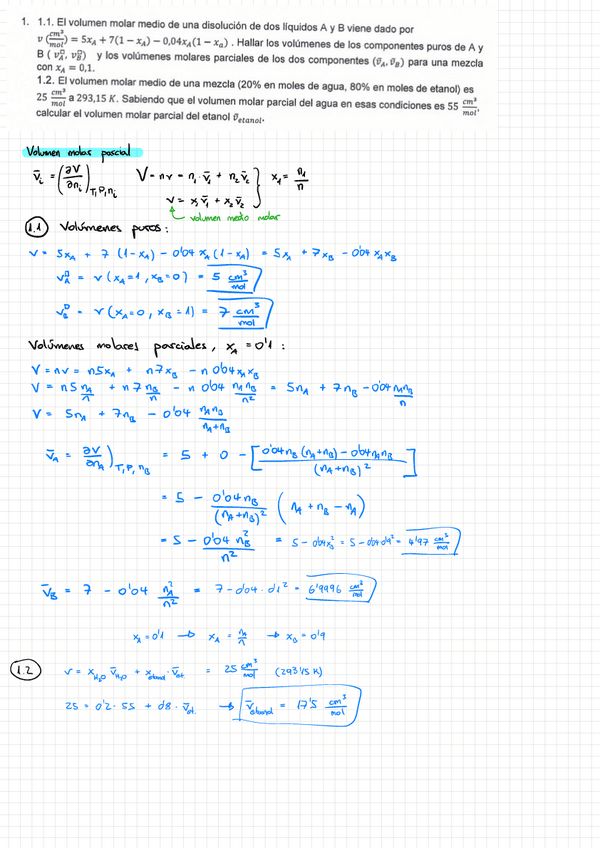 1. 1.1. El volumen molar medio de una disolución de dos líquidos A y B viene dado por
v (cm³/mol) = 5x_A + 7(1 − x_A) − 0,04x_A(1 − x_a) . Hallar los volúmenes de los componentes puros de A y
B ( v_A^□, v_B^□) y los volúmenes molares parciales de los dos componentes (v̄_A, v̄_B) para una mezcla
con x_A = 0,1.
1.2. El volumen molar medio de una mezcla (20% en moles de agua, 80% en moles de etanol) es
25 cm³/mol a 293,15 K. Sabiendo que el volumen molar parcial del agua en esas condiciones es 55 cm³/mol,
calcular el volumen molar parcial del etanol v̄_etanol.
Volumen molar parcial
v̄_i = (∂V/∂n_i)_T,P,n_i V = nv = n₁·v̄₁ + n₂v̄₂ } x₁ = n₁/n
v = x₁v̄₁ + x₂v̄₂
volumen medio molar
1.1 Volúmenes puros:
v = 5x_A + 7 (1-x_A) - 0'04 x_A (1-x_A) = 5x_A + 7x_B - 0'04 x_A x_B
v_A^□ = v (x_A=1, x_B=0) = 5 cm³/mol
v_B^□ = v (x_A=0, x_B=1) = 7 cm³/mol
Volúmenes molares parciales, x_A = 0'1:
V = nv = n5x_A + n7x_B - n 0'04 x_A x_B
V = n5 n_A/n + n7 n_B/n - n 0'04 n_A n_B/n² = 5n_A + 7n_B - 0'04 n_A n_B/n
V = 5n_A + 7n_B - 0'04 n_A n_B/(n_A+n_B)
v̄_A = ∂V/∂n_A)_T,P,n_B = 5 + 0 - [0'04 n_B (n_A+n_B) - 0'04 n_A n_B/(n_A+n_B)²]
= 5 - 0'04 n_B/(n_A+n_B)² (n_A + n_B - n_A)
= 5 - 0'04 n_B²/n² = 5 - 0'04 x_B² = 5 - 0'04·0'9² = 4'97 cm³/mol
v̄_B = 7 - 0'04 n_A²/n² = 7 - 0'04·0'1² = 6'9996 cm³/mol
x_A = 0'1 → x_A = n_A/n → x_B = 0'9
1.2 v = x_H₂O v̄_H₂O + x_etanol · v̄_et. = 25 cm³/mol (293'15 K)
25 = 0'2·55 + 0'8·v̄_et. → v̄_etanol = 17'5 cm³/mol